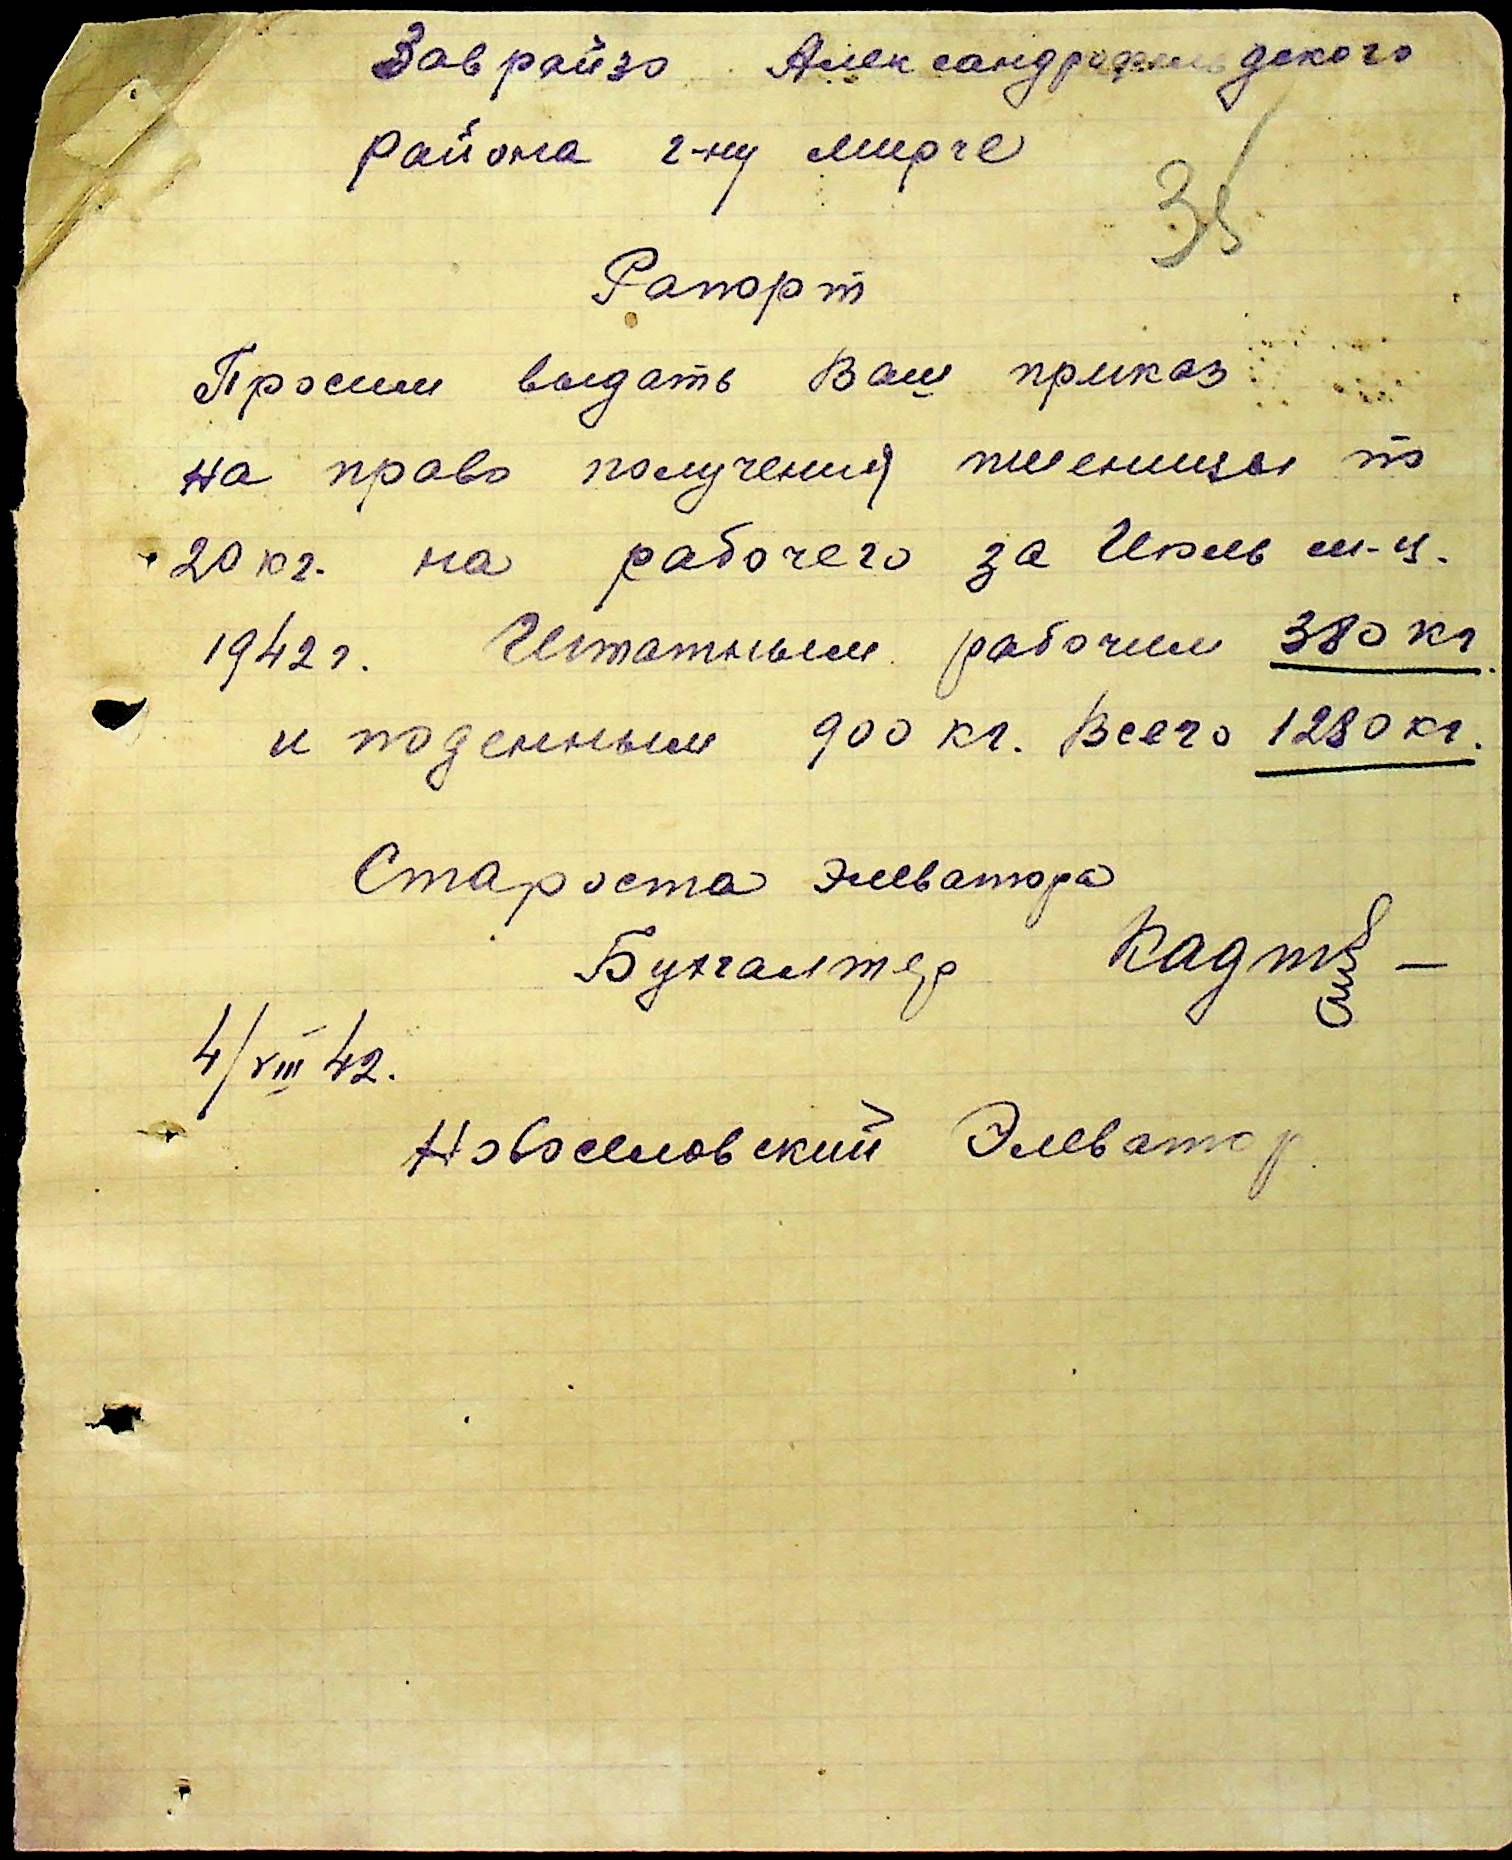 Заврайзо Александрофельдского
района г-ну Мирче
35
Рапорт
Просим выдать Ваш приказ
на право получения пшеницы по
20 кг. на рабочего за Июль м-ц.
1942 г. Штатным рабочим 380 кг
и поденным 900 кг. Всего 1280 кг.
Староста элеватора
Бухгалтер
4/VIII 42.
Новоселовский Элеватор